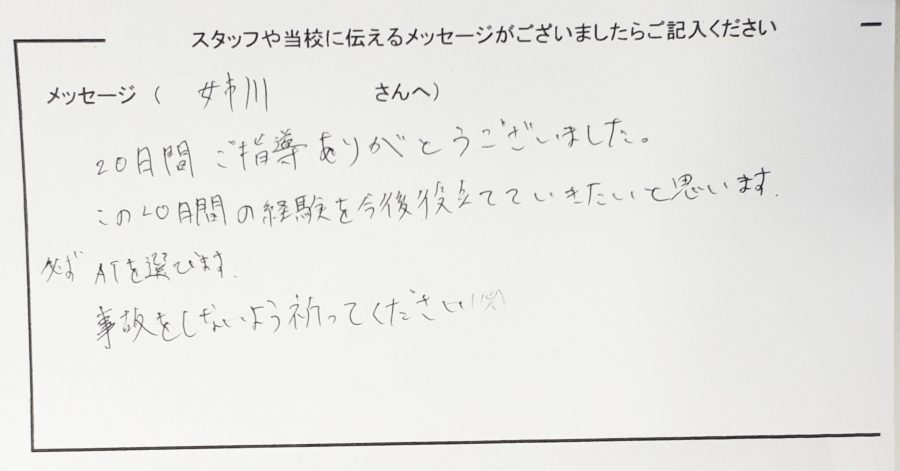 スタッフや当校に伝えるメッセージがございましたらご記入ください
メッセージ ( 姉川 さんへ)
20日間 ご指導ありがとうございました。
この20日間の経験を今後役立てていきたいと思います.
必ず ATを選びます.
事故をしないよう祈ってください(笑)